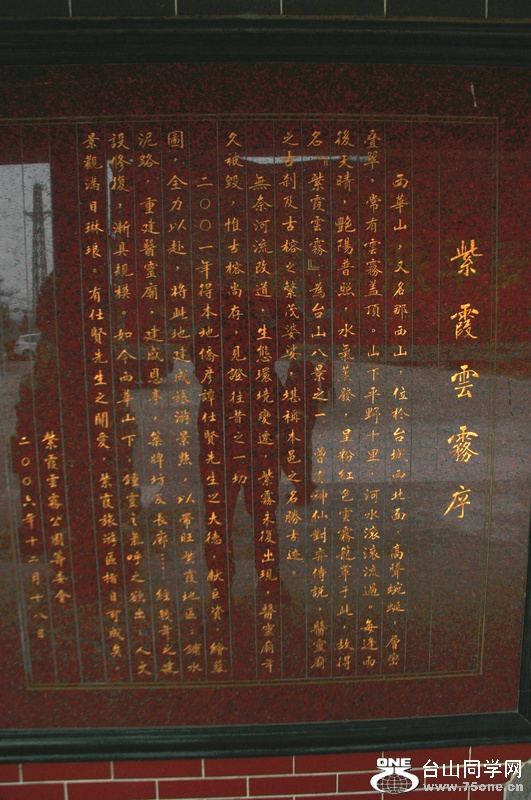 紫霞雲霧序
西華山，又名那西山，位於台城西北面，高聳蜿蜒，層巒
疊翠，常有雲霧蓋頂。山下平野十里，河水滾滾流過。每逢雨
後天晴，艷陽普照，水氣蒸發，呈粉紅色雲霧籠罩于此，故得
名『紫霞雲霧』，為台山八景之一。曾有神仙對弈傳說，醫靈廟
之古刹及古榕之繁茂婆娑，堪稱本邑之名勝古迹。
無奈河流改道，生態環境變遷，紫霧未復出現，醫靈廟年
久被毀，惟古榕尚存，見證往昔之一切。
二00一年得本地僑彥譚仕賢先生之大德，献巨資，繪藍
圖，全力以赴，將此地建成旅游景點，以帶旺紫霞地區：鋪水
泥路，重建醫靈廟，建成恩亭，築牌坊及長廊…經幾年之建
設修復，漸具規模。如今西華山下，鍾靈之氣呼之欲出，人文
景觀滿目琳琅。有仕賢先生之關愛，紫霞旅游區指日可成矣。
紫霞雲霧公園籌委會
二00六年十二月十八日
ONE
台山同学网
www.75one.cn